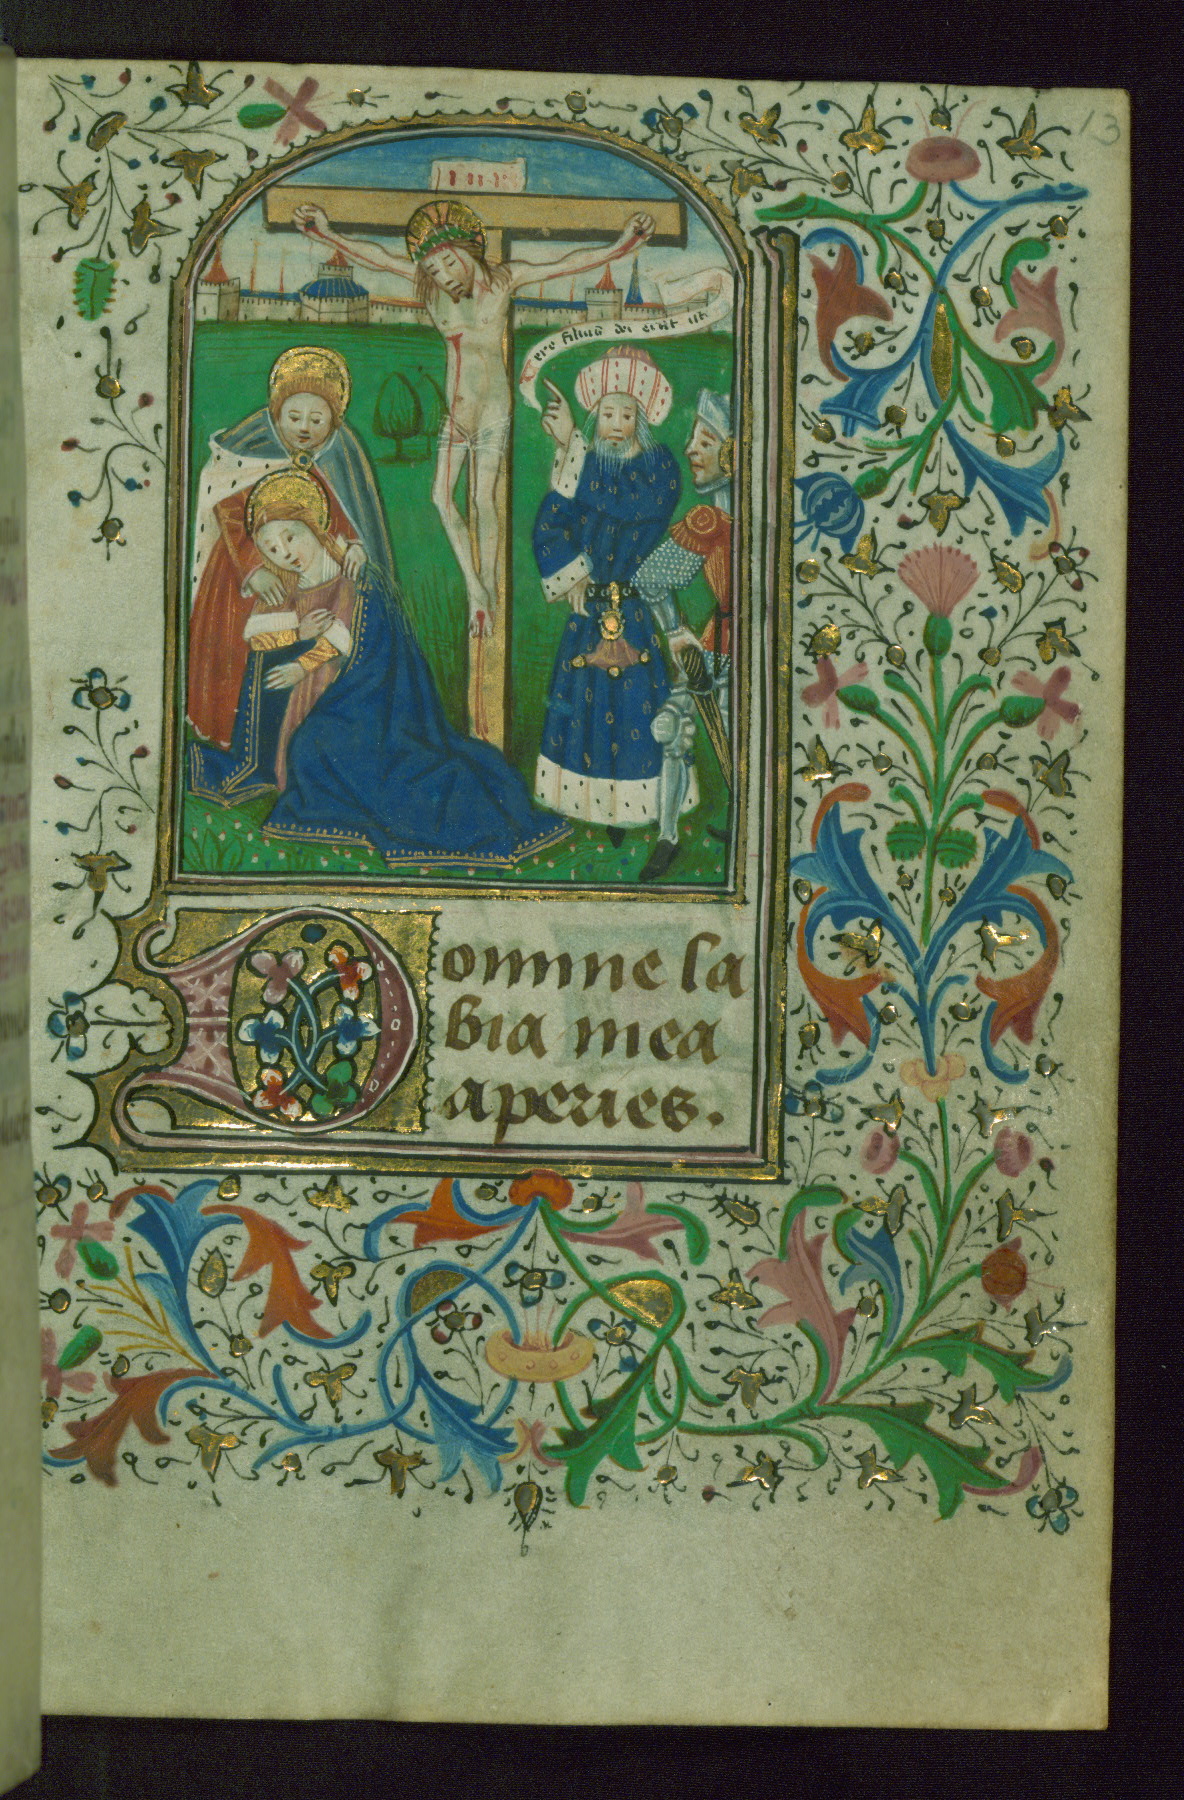 13
ere filius dei erat iste
Domine la
bia mea
aperies.